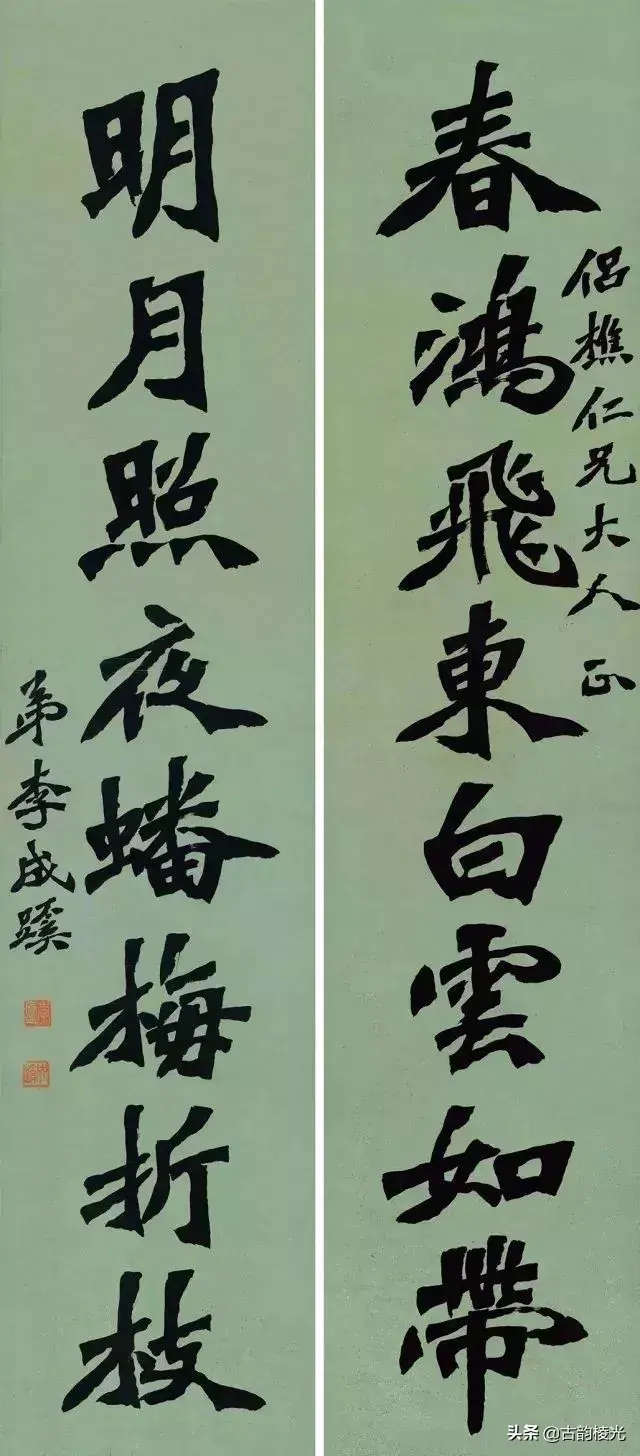 侶樵仁兄大人 正
春鴻飛東白雲如帶
明月照夜蟠梅折枝
弟李成蹊
头条 @古韵棱光